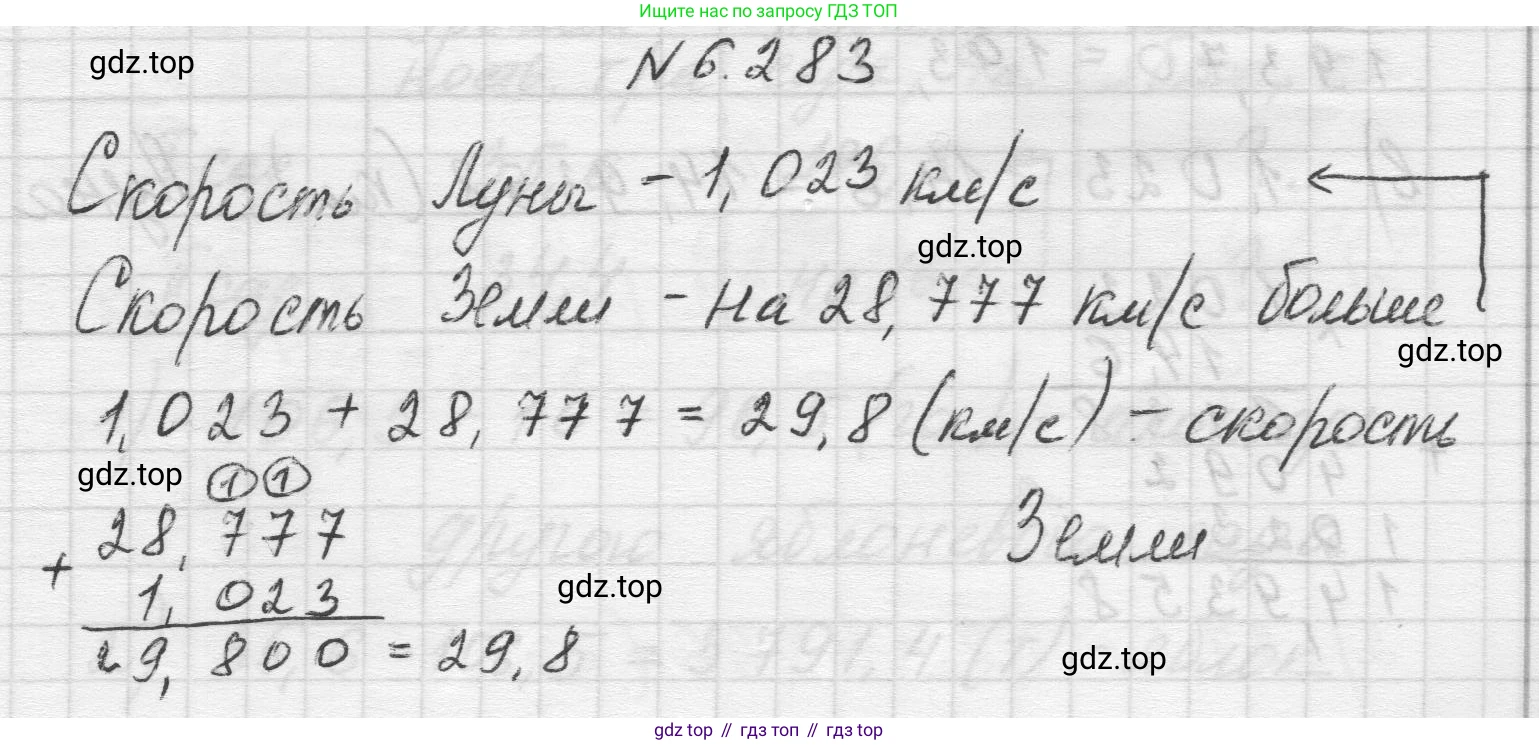 Ищите нас по запросу ГДЗ ТОП
gdz.top
N 6.283
Скорость Луны - 1,023 км/с
gdz.top
Скорость Земли - на 28,777 км/с больше
gdz.top
1,023 + 28,777 = 29,8 (км/с) - скорость
Земли
gdz.top
1 1
28,777
+
1,023
gdz.top
29,800 = 29,8
gdz.top
gdz.top // гдз топ // gdz.top